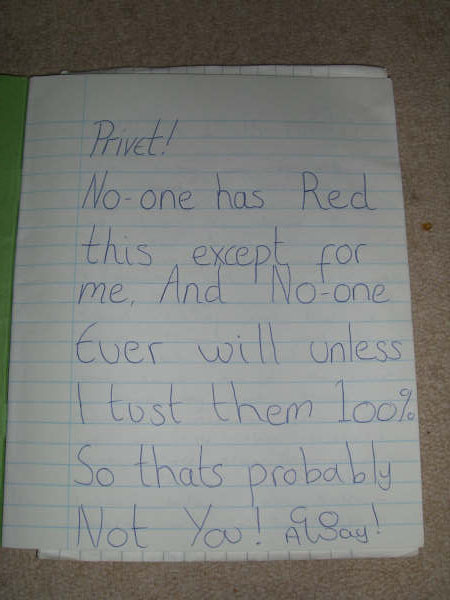 Privet!
No-one has Red
this except for
me, And No-one
Ever will unless
I tust them 100%
So thats probably
Not You! GO AWay!